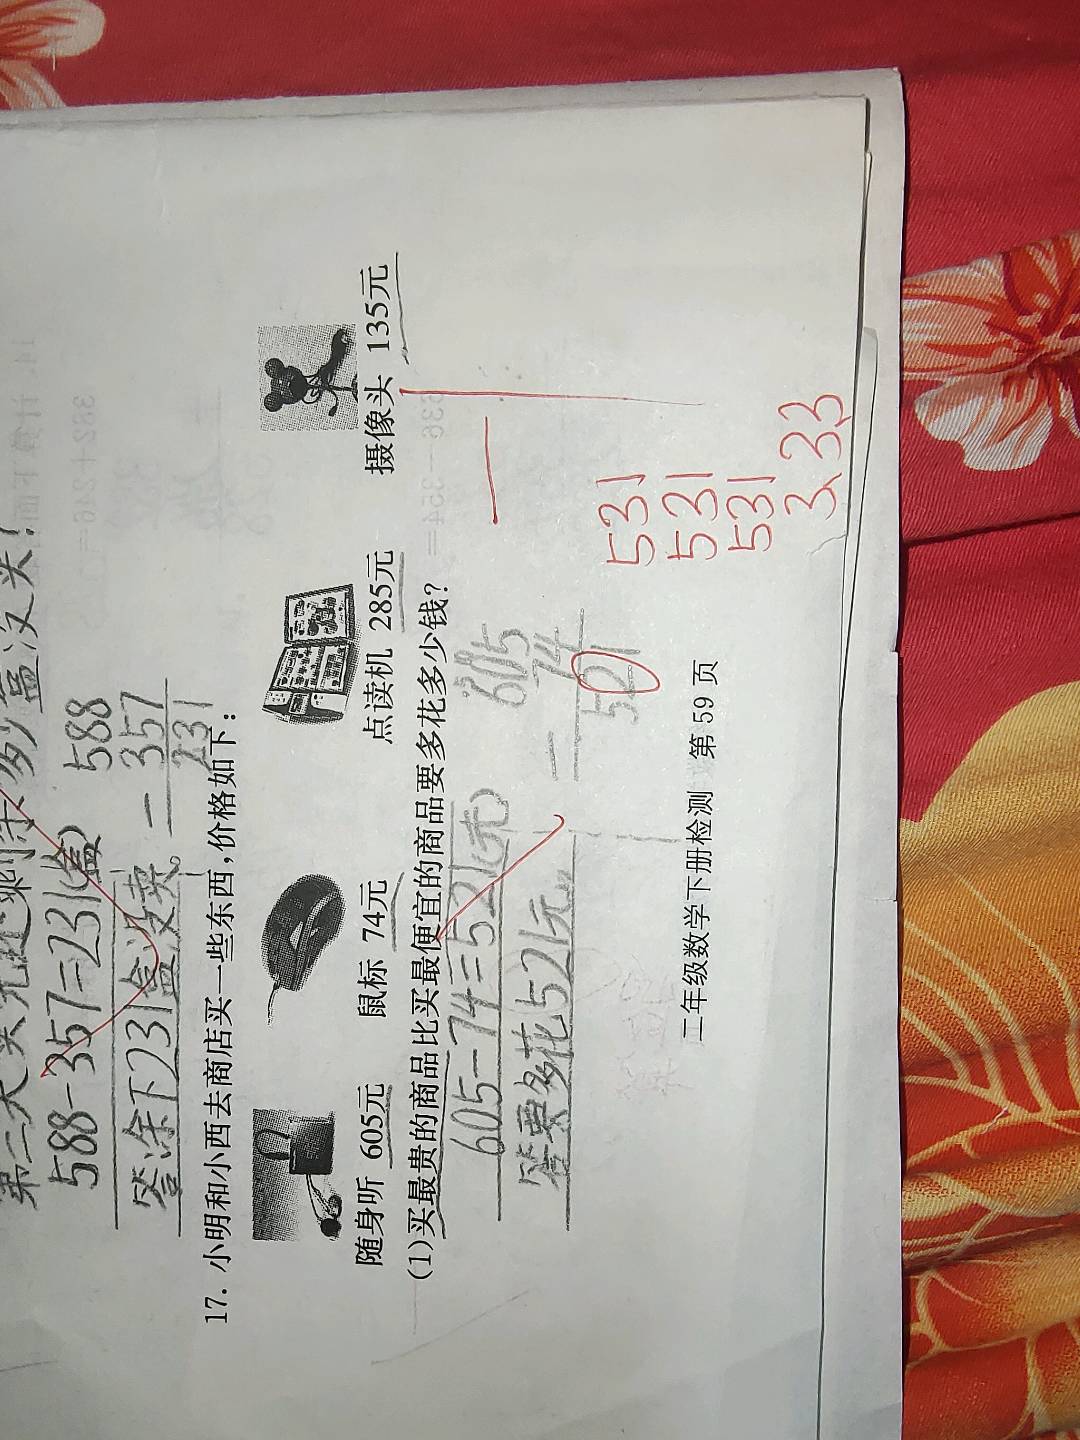 588-357=231(盒)
588
- 357
231
答余下231盒没卖。
17. 小明和小西去商店买一些东西,价格如下:
随身听 605元 鼠标 74元 点读机 285元 摄像头 135元
(1)买最贵的商品比买最便宜的商品要多花多少钱?
605-74=521(元)
605
- 74
521
答要多花521元
531
531
531
3、33
二年级数学下册检测 第 59 页